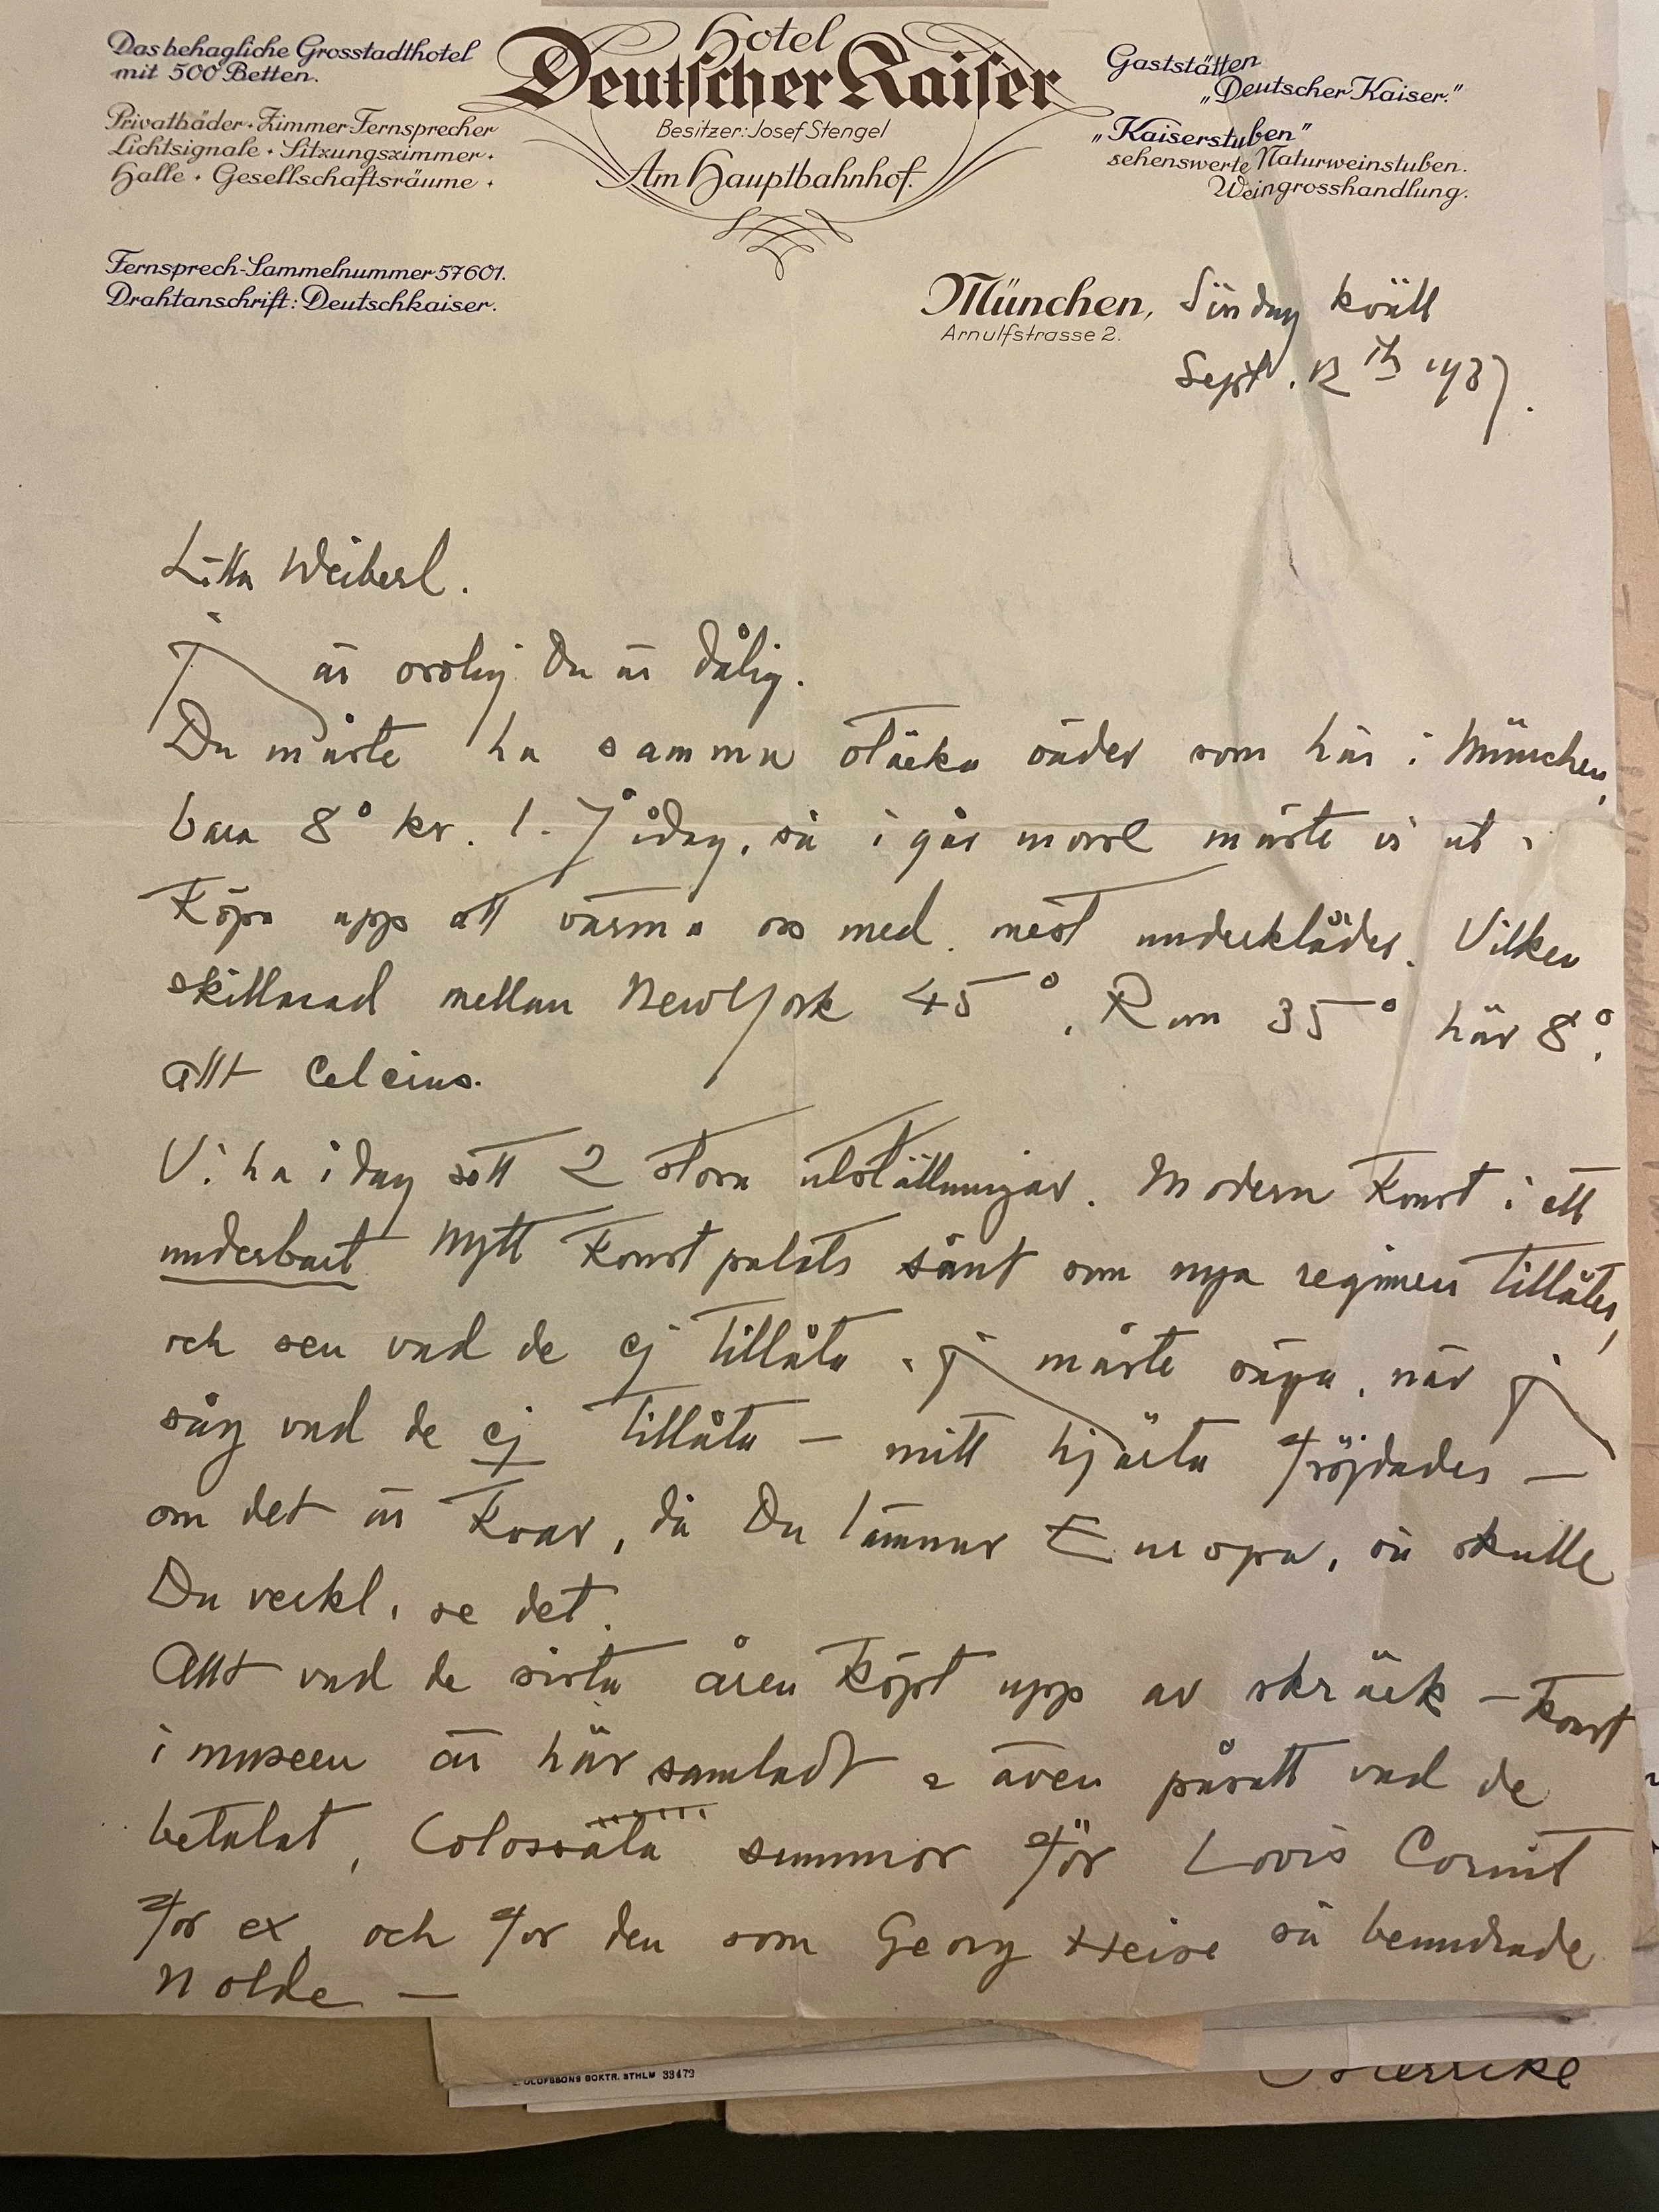 Das behagliche Grosstadthotel
mit 500 Betten.
Privatbäder · Zimmer-Fernsprecher
Lichtsignale · Sitzungszimmer ·
Halle · Gesellschaftsräume ·
Fernsprech-Sammelnummer 57601.
Drahtanschrift: Deutschkaiser.
Hotel
Deutscher Kaiser
Besitzer: Josef Stengel
Am Hauptbahnhof.
Gaststätten
„Deutscher Kaiser."
„Kaiserstuben"
sehenswerte Naturweinstuben.
Weingrosshandlung.
München, Söndag kväll
Arnulfstrasse 2.
Sept. 12th 1937.
Litta Weiberl.
J är orolig Du är dålig.
Du måste ha samma otäcka väder som här i München,
bara 8° kv. 1. 7 idag, så i går morse måste vi ut &
köpa upp att värma oss med. mest underkläder. Vilken
skillnad mellan New York 45°, Rom 35° här 8°,
allt Celcius.
Vi ha i dag sett 2 stora utställningar. Modern Konst i ett
underbart nytt Konst palats sånt som nya regimen tillåter,
och sen vad de ej tillåta. j måste säga, när j
såg vad de ej tillåta — mitt hjärta fröjdades —
om det är kvar, då Du lämnar Europa, så skulle
Du verkl. se det.
Allt vad de sista åren köpt upp av skräck - konst
i museen är här samladt & även påsatt vad de
betalat, Colossala summor för Lovis Corint
for ex och for den som Georg Heise så beundrade
Nolde —
OLOFSSONS BOKTR. STHLM 33473